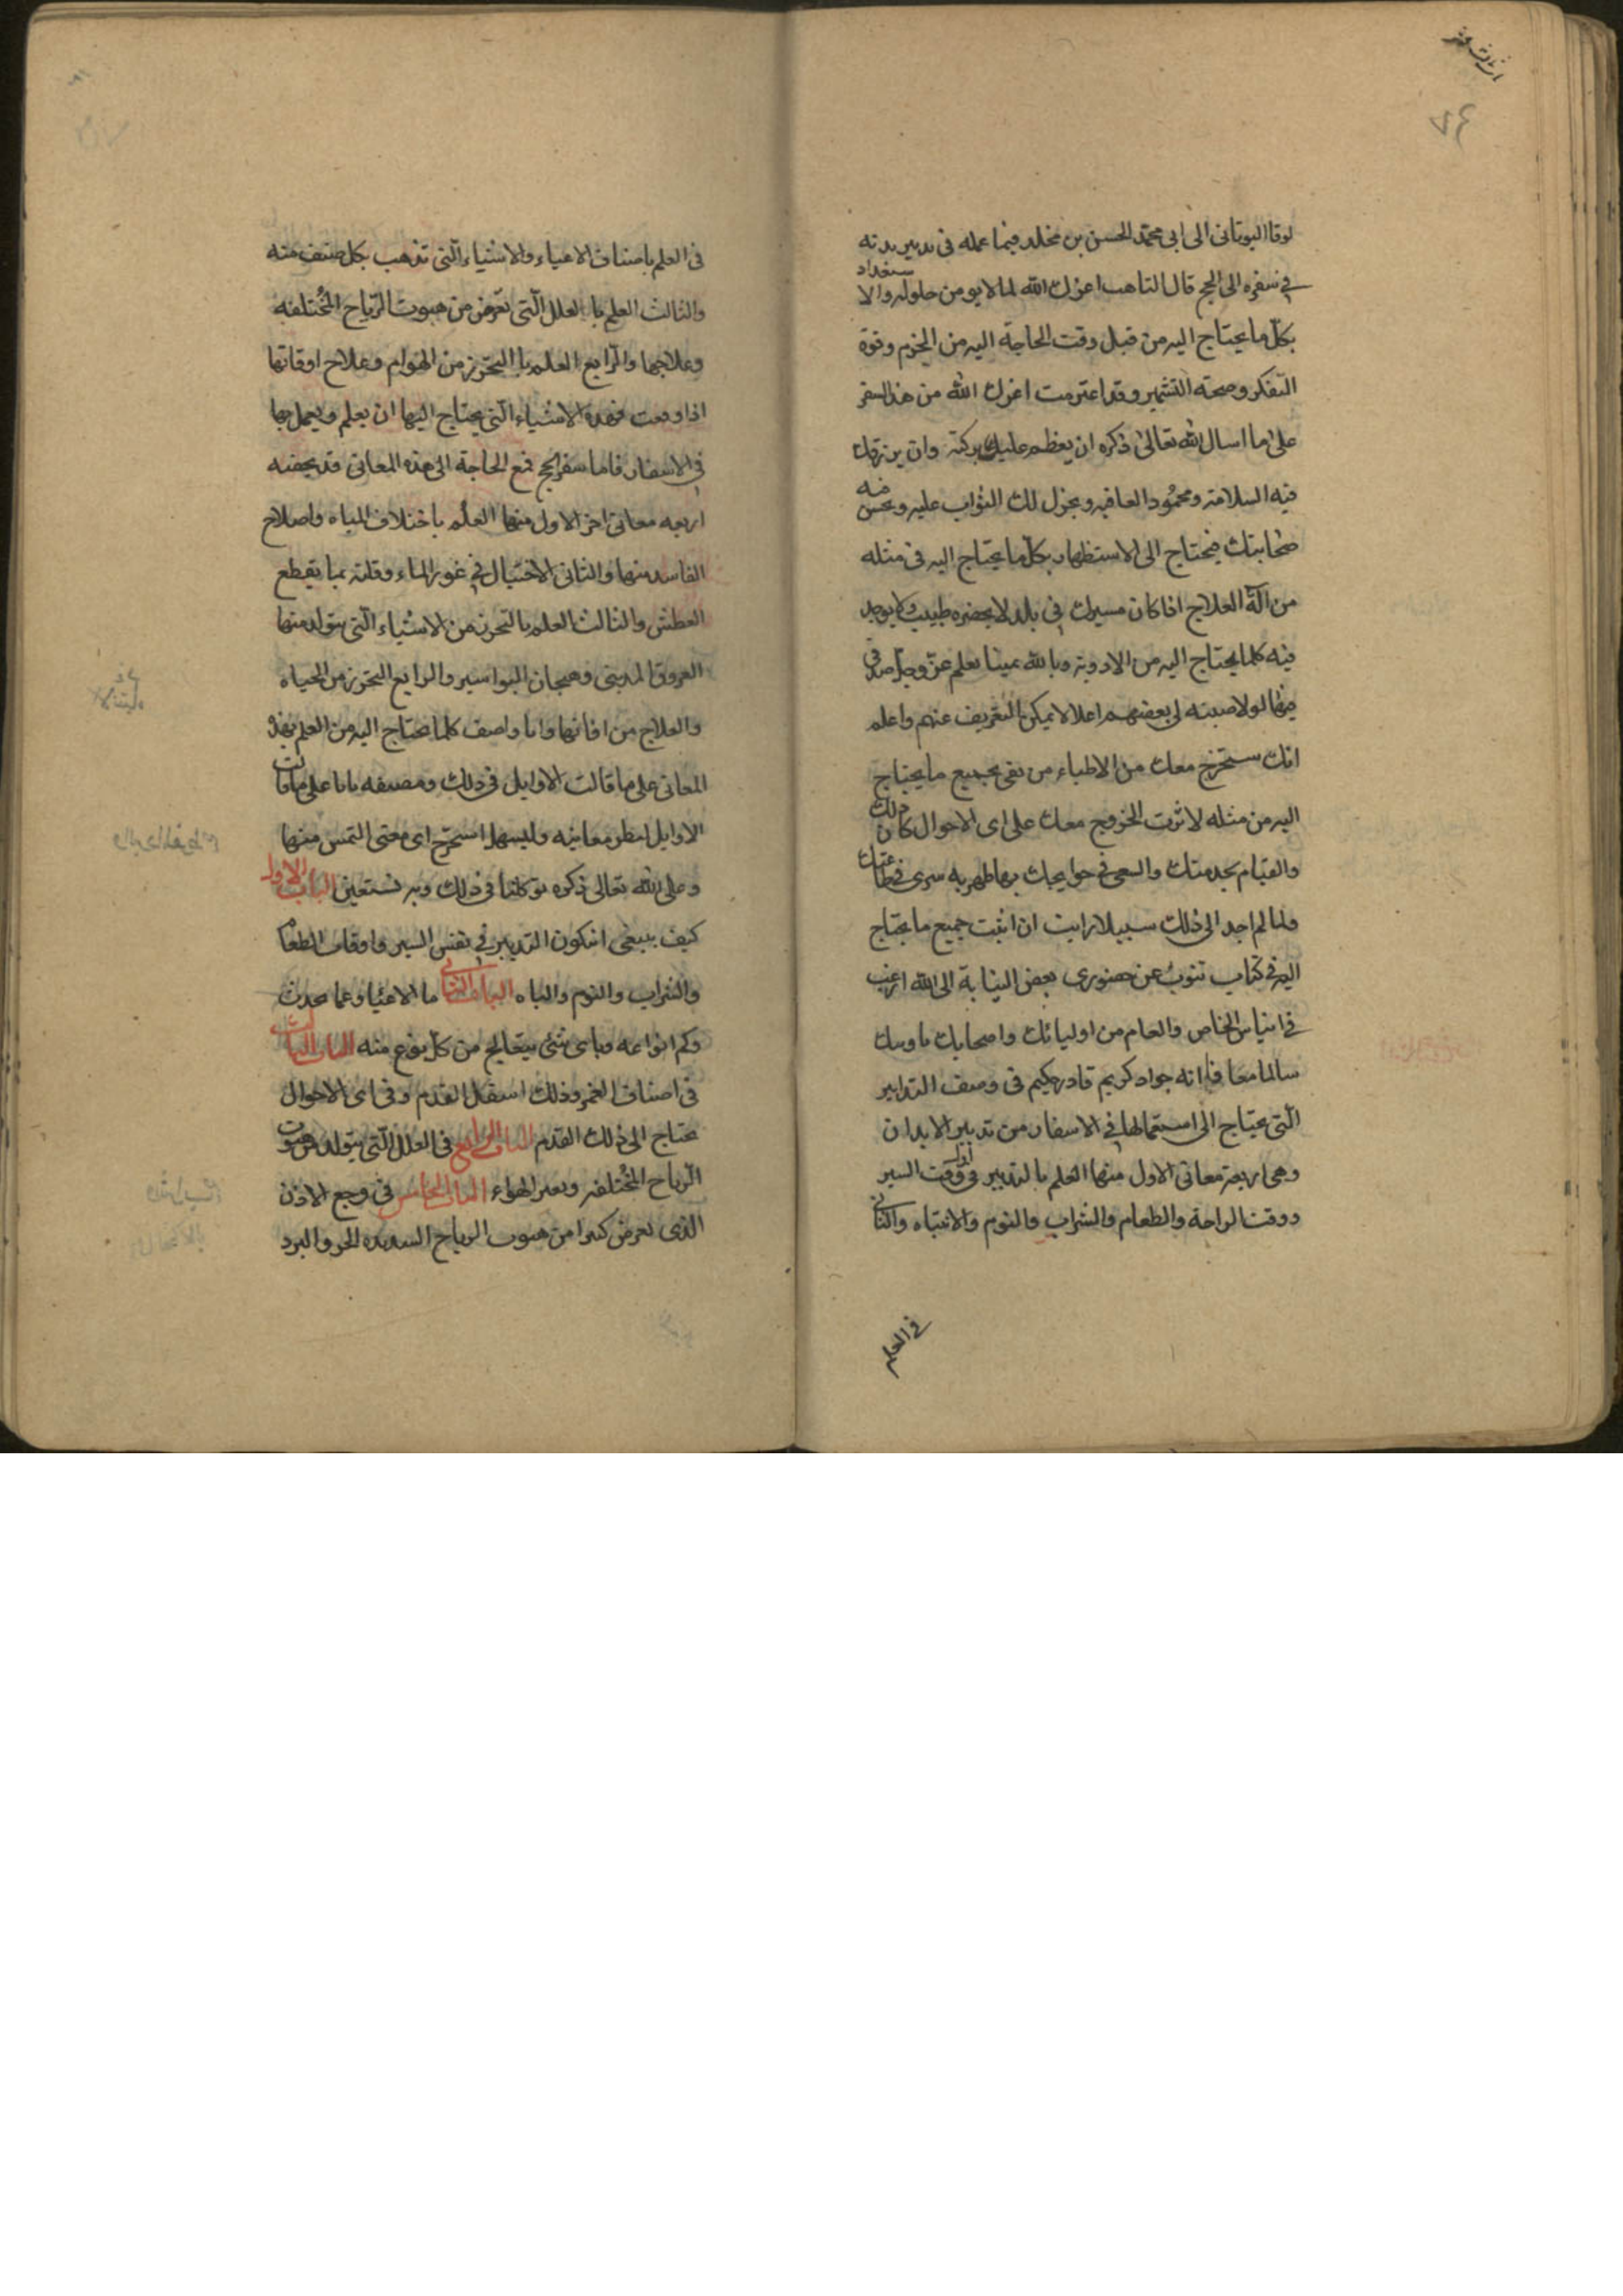 لوقا اليوناني الى ابي محمد الحسن بن مخلد فيما عمله في تدبير بدنه
في سفره الى الحج قال التاهب اعزك الله لما لا يومن حلوله والاستعداد
بكل ما يحتاج اليه من قبل وقت الحاجة اليه من الحزم وقوة
التفكر وصحته التشمير وقد اعترمت اعزك الله من هذا السفر
على ما اسال الله تعالى ذكره ان يعظم عليك بركته وان يرزقك
فيه السلامة ومحمود العافيه ويجزل لك الثواب عليه ويحسن فيه
صحابتك فيحتاج الى الاستظهار بكل ما يحتاج اليه في مثله
من آلة العلاج اذا كان مسيرك في بلد لا يحضره طبيب ولا يوجد
فيه كلما يحتاج اليه من الادوية وبالله يمينا يعلم عز وجل صدقي
فيها لولا صبيته لي بعضهم اعلالا يمكن التعريف عنهم واعلم
انك ستخرج معك من الاطباء من يفي بجميع ما يحتاج
اليه من مثله لاثرت الخروج معك على اى الاحوال كان ذلك
والقيام بخدمتك والسعى في حوايجك بها طهر به سرى في طاعتك
ولما لم اجد الى ذلك سبيلا رايت ان اثبت جميع ما يحتاج
اليه في كتاب تنوب عن حضورى بعض النيابة الى الله ارغب
في الخاص والعام من اوليائك واصحابك
سالما معافا انه جواد كريم قادر حكيم في وصف التدابير
التى يحتاج الى استعمالها في الاسفار من تدبير الابدان
وهى اربعة معانى الاول منها العلم بالتدبير في وقت السير
ووقت الراحة والطعام والشراب والنوم والانتباه والثاني
في العلم
في العلم باصناف الاعياء والاشياء التى تذهب بكل صنف منه
والثالث العلم بالعلل التى تعرض من هبوب الرياح المختلفه
وعلاجها والرابع العلم بالتحرز من الهوام وعلاج اوقاتها
اذا وقعت فهذه الاشياء التى يحتاج اليها ان يعلم ويعمل بها
في الاسفار فاما سفر الحج فمع الحاجة الى هذه المعانى قد يحضه
اربعه معانى اخر الاول منها العلم باختلاف المياه واصلاح
الفاسد منها والثانى الاحتيال في غور الماء وقلته بما يقطع
العطش والثالث العلم بالتحرز من الاشياء التى يتولد منها
العروق المدينى وهيجان البواسير والرابع التحرز من الحياه
والعلاج من افاتها وانا واصف كلما يحتاج اليه من العلم بهذه
المعانى على ما قالت الاوايل في ذلك ومصنفه بابا على ما قالت
الاوايل معانيه وليسهل استخرج اى معنى التمس منها
وعلى الله تعالى ذكره توكلنا في ذلك وبه نستعين الباب الاول
كيف ينبغى ان يكون التدبير في نفس السير واوقات الطعام
والشراب والنوم والباه الباب الثاني ما الاعياء وعما يحدث
وكم انواعه وباى شئ يتعالج من كل نوع منه الباب الثالث
في اصناف الغمر وذلك اسفل القدم وفي اى الاحوال
يحتاج الى ذلك القدم الباب الرابع في العلل التى يتولد من هبوب
الرياح المختلفه وتغير الهواء الباب الخامس في وجع الاذن
الذى يعرض كثيرا من هبوب الرياح الشديده الحر والبرد